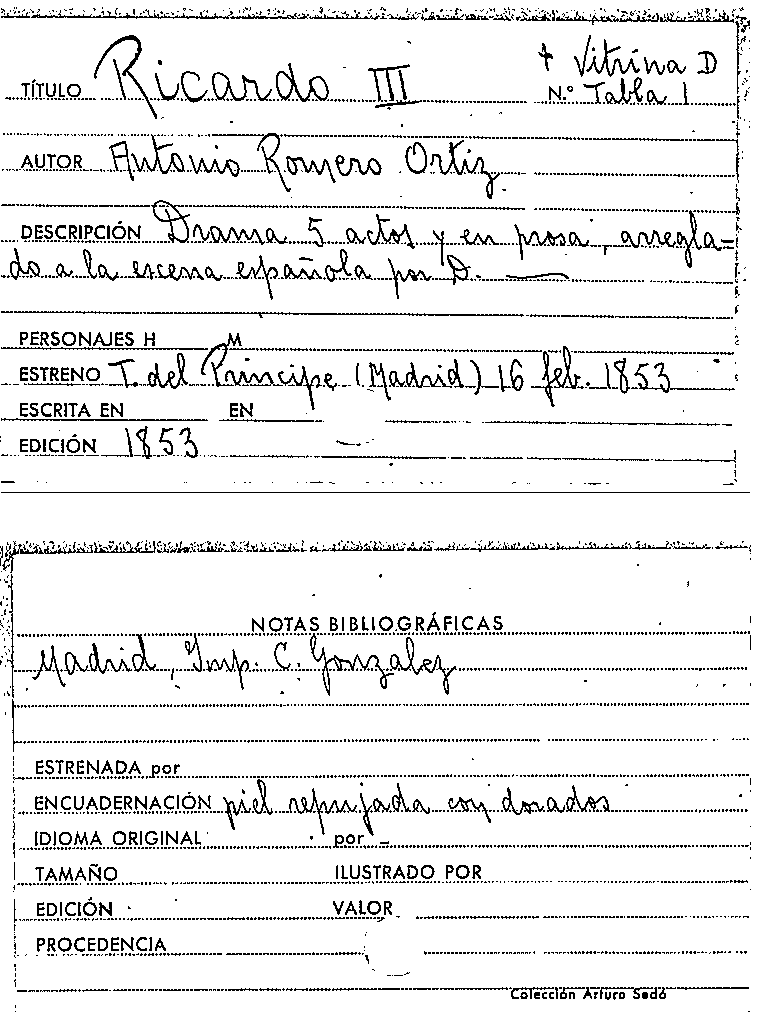 + Vitrina D
TÍTULO Ricardo III N.º Tabla 1
AUTOR Antonio Romero Ortiz.
DESCRIPCIÓN Drama 5 actos y en prosa, arregla=
do a la escena española por D. ——
PERSONAJES H M
ESTRENO T. del Príncipe (Madrid) 16 feb. 1853
ESCRITA EN EN
EDICIÓN 1853
NOTAS BIBLIOGRÁFICAS
Madrid, Imp. C. Gonzalez
ESTRENADA por
ENCUADERNACIÓN piel repujada con dorados
IDIOMA ORIGINAL por –
TAMAÑO ILUSTRADO POR
EDICIÓN VALOR
PROCEDENCIA
Colección Arturo Sedó